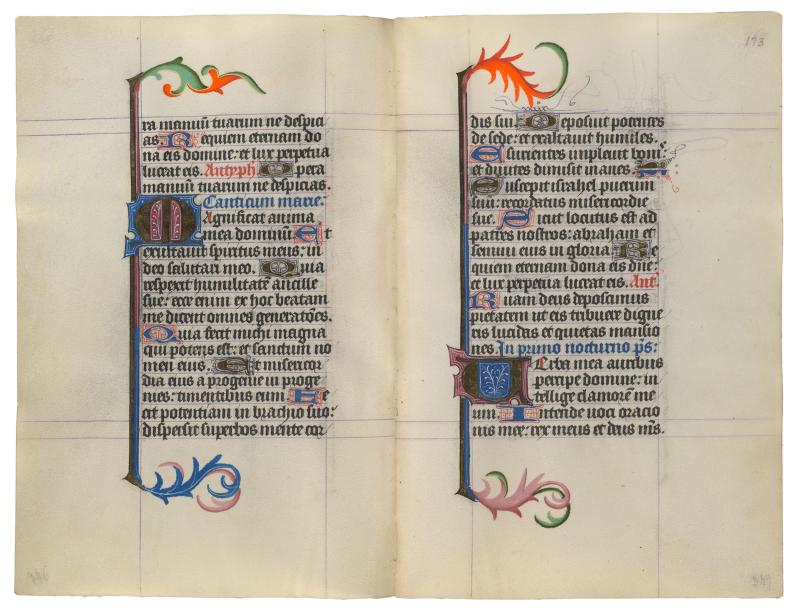 ra manuū tuarum ne despicı
as Requiem eternam do
na eis domine: et lux perpetua
luceat eis. Antyphª Opera
manuū tuarum ne despicias.
Canticum marie.
Magnificat anima
mea dominū. Et
exultauit spiritus meus: in
deo salutari meo. Quia
respexit humilitatē ancille
sue: ecce enim ex hoc beatam
me dicent omnes generatōes.
Quia fecit michi magna
qui potens est: et sanctum no
men eius. Et misericor
dia eius a progenie in proge
nies: timentibus eum Fe
cit potentiam in brachio suo:
dispersit superbos mente cor
173
dis sui. Deposuit potentes
de sede: et exaltauit humiles.
Esurientes impleuit boni:
et diuites dimisit inanes.
Suscepit israhel puerum
suū: recordatus misericordie
sue. Sicut locutus est ad
patres nostros: abraham et
semini eius in gloria Re
quiem eternam dona eis dn̄e:
et lux perpetua luceat eis. Antª
Ruam deus deposcimus
pietatem ut eis tribuere digne
ris lucidas et quietas mansio
nes. In primo nocturno p̄s:
Uerba mea auribus
percipe domine: in
tellige clamorē me
um. Intende uoci oracio
nis mee: rex meus et deus m̄s.